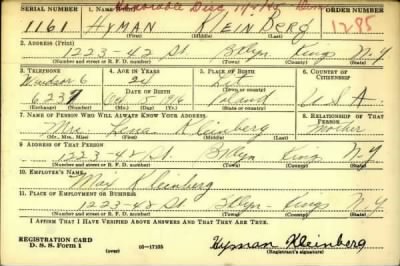 SERIAL NUMBER 1. NAME (Print) ORDER NUMBER
Honorable Disc.
1161 HYMAN KLEINBERG 1285
(First) (Middle) (Last)
2. ADDRESS (Print)
1223-42 St Bklyn Kings N.Y
(Number and street or R. F. D. number) (Town) (County) (State)
3. TELEPHONE 4. AGE IN YEARS 5. PLACE OF BIRTH 6. COUNTRY OF CITIZENSHIP
Windsor 6 24
6237 Poland U.S.A.
(Exchange) (Number) (Mo.) (Day) (Yr.) (State or country)
7. NAME OF PERSON WHO WILL ALWAYS KNOW YOUR ADDRESS 8. RELATIONSHIP OF THAT PERSON
Mrs. Lena Kleinberg Mother
(Mr., Mrs., Miss) (First) (Middle) (Last)
9. ADDRESS OF THAT PERSON
1223-42 St Bklyn Kings N.Y
(Number and street or R. F. D. number) (Town) (County) (State)
10. EMPLOYER'S NAME
Max Kleinberg
11. PLACE OF EMPLOYMENT OR BUSINESS
Bklyn Kings N.Y
(Number and street or R. F. D. number) (Town) (County) (State)
I AFFIRM THAT I HAVE VERIFIED ABOVE ANSWERS AND THAT THEY ARE TRUE.
REGISTRATION CARD
D. S. S. Form 1 (over) 16-17105 Hyman Kleinberg
(Registrant's signature)